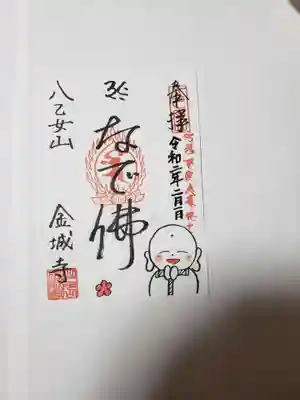 奉拝
令和二年二月一日
なで佛
八乙女山 金城寺